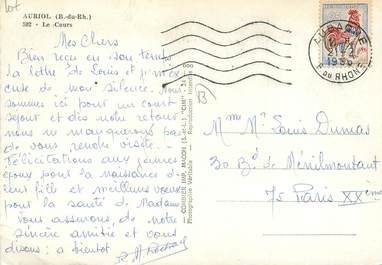 AURIOL (B.-du-Rh.)
592 - Le Cours
Mes Chers
Bien reçu en son temps
la lettre de Louis et
cuse de mon silence. Nous
sommes ici pour un court
séjour et dès notre retour
nous ne manquerons pas
de vous rendre visite.
Félicitations aux jeunes
époux pour la naissance de
leur fille et meilleurs vœux
pour la santé de Madame
Vous assurons, de notre
sincère amitié et vous
disons : a bientôt
COMBIER IMP. MACON (S.-et-L.) "CIM"
Photographie Véritable - Reproduction Interdite
B
1966
DU RHONE
M me M. Louis Dumas
30 Bd de Ménilmontant
75 Paris XXème